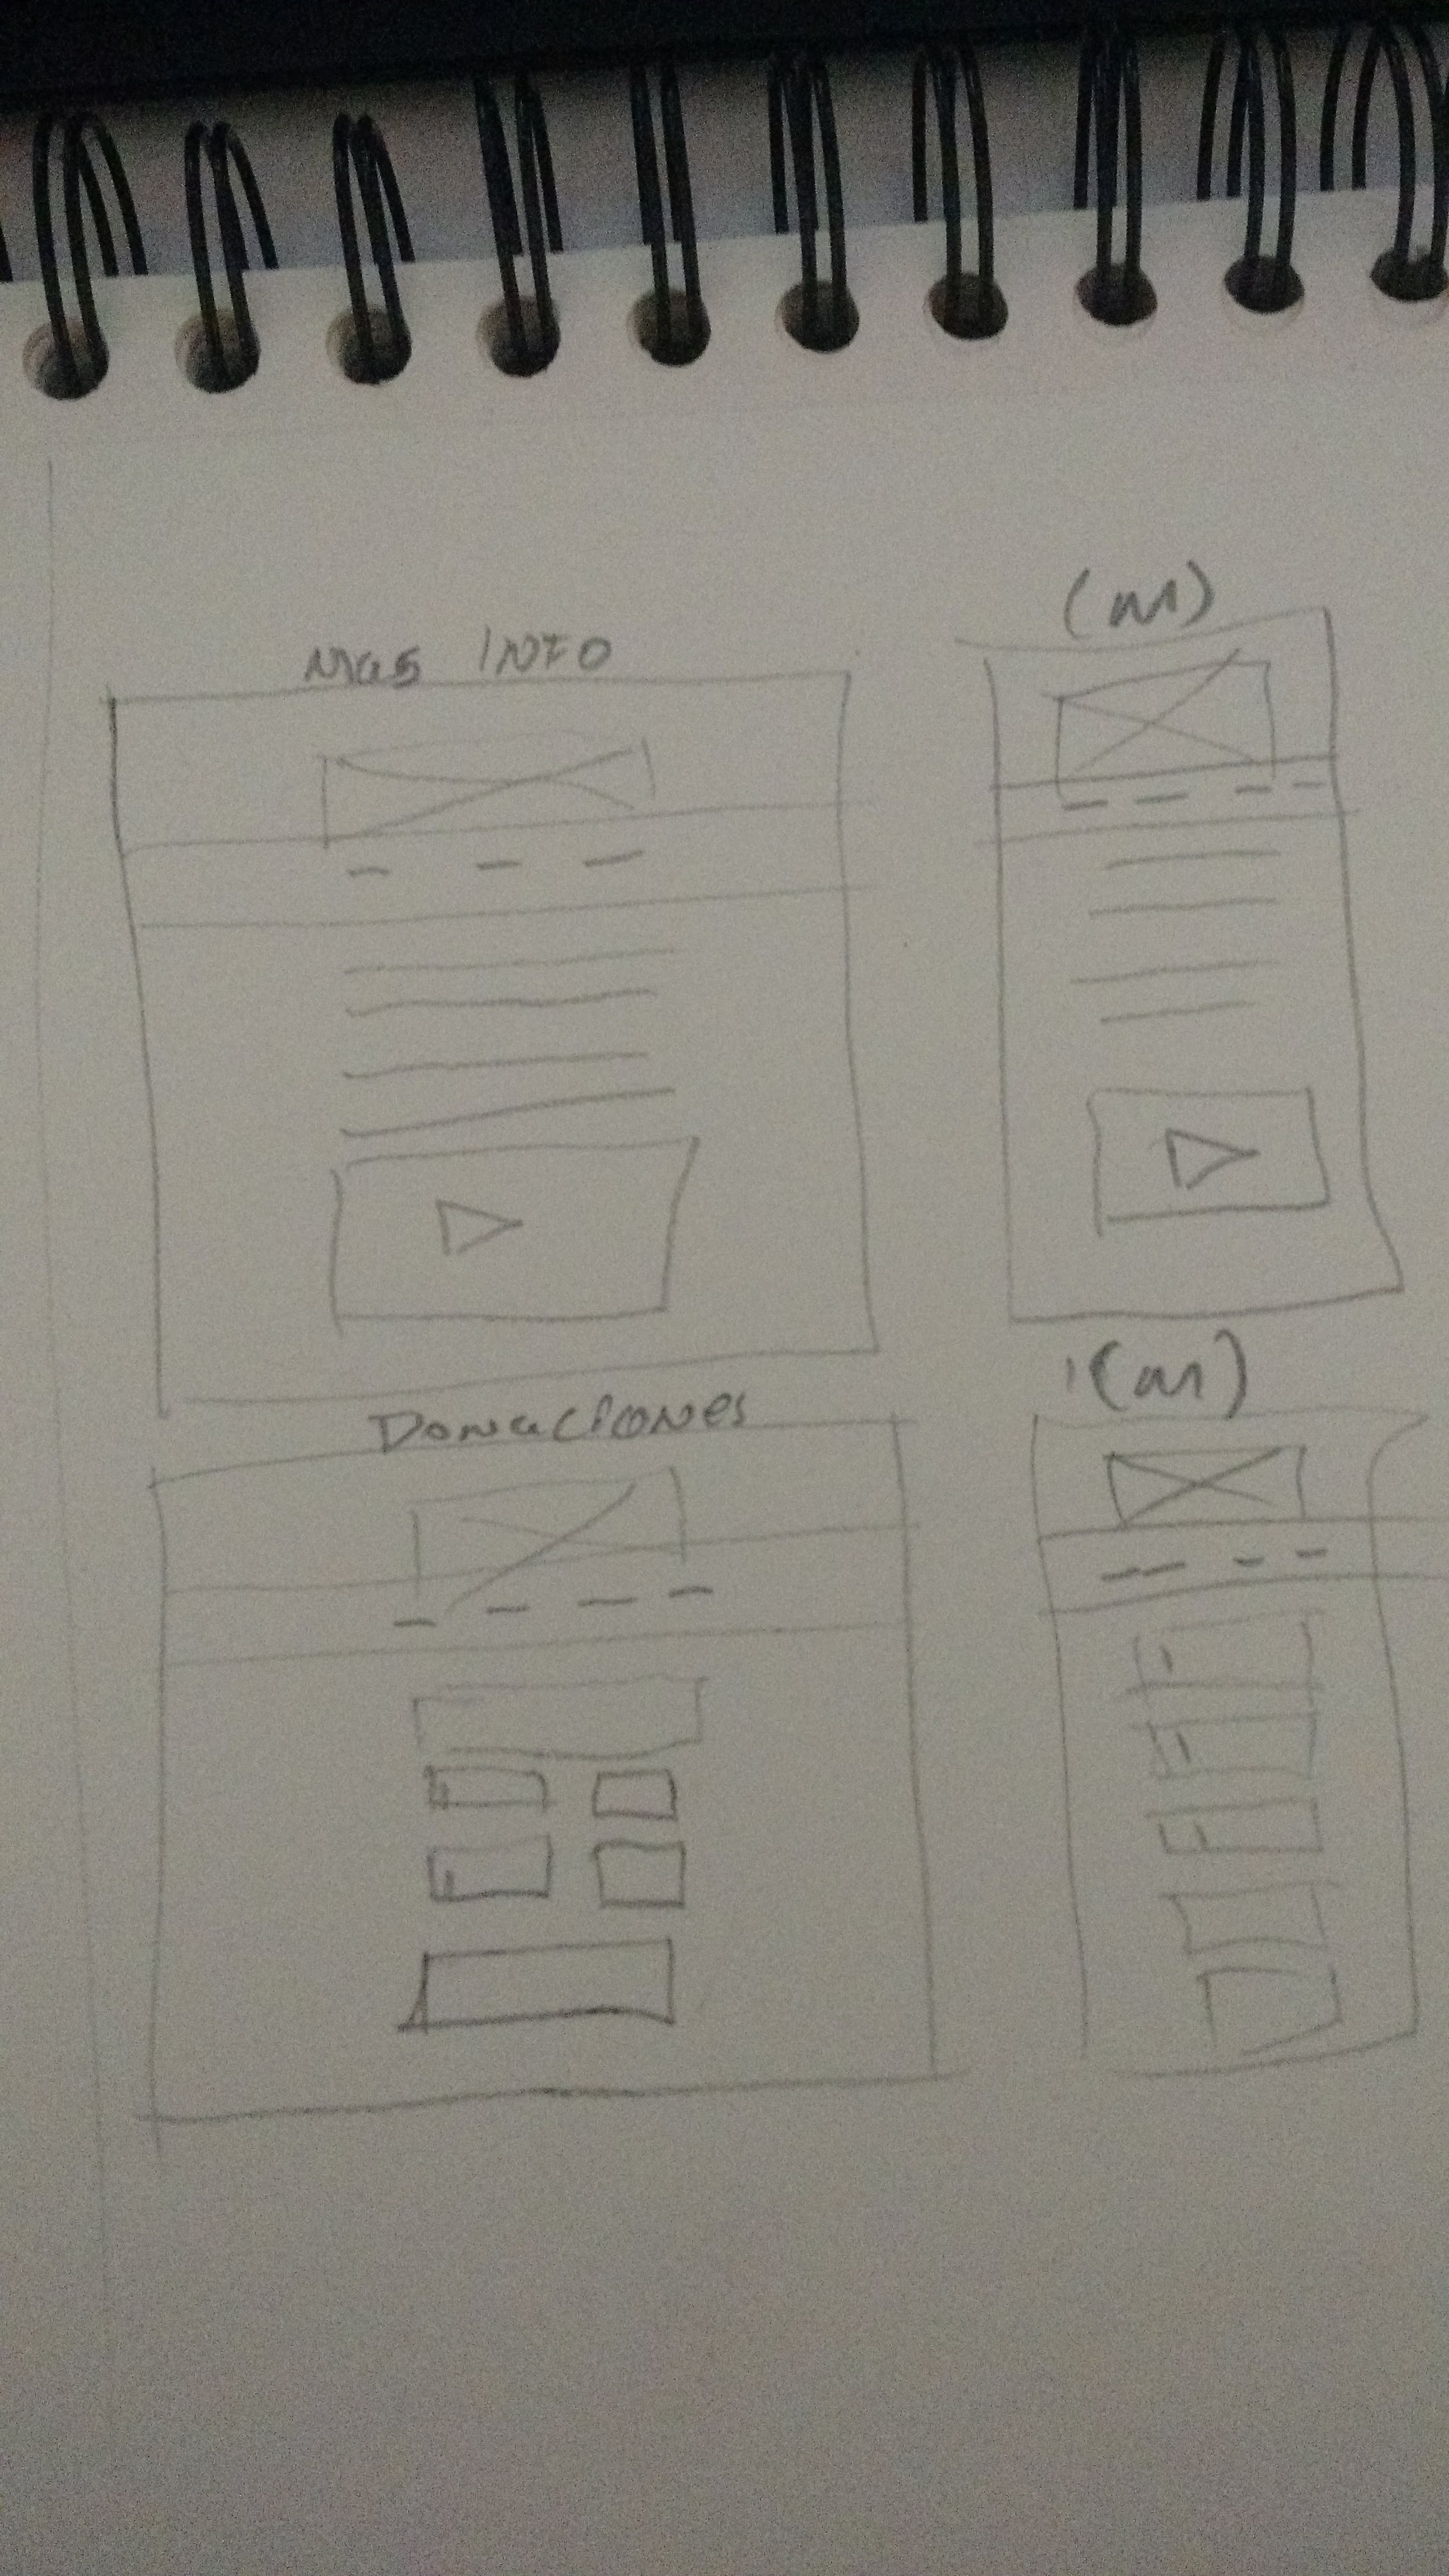 Mas INFO
(m)
Donaciones
(m)